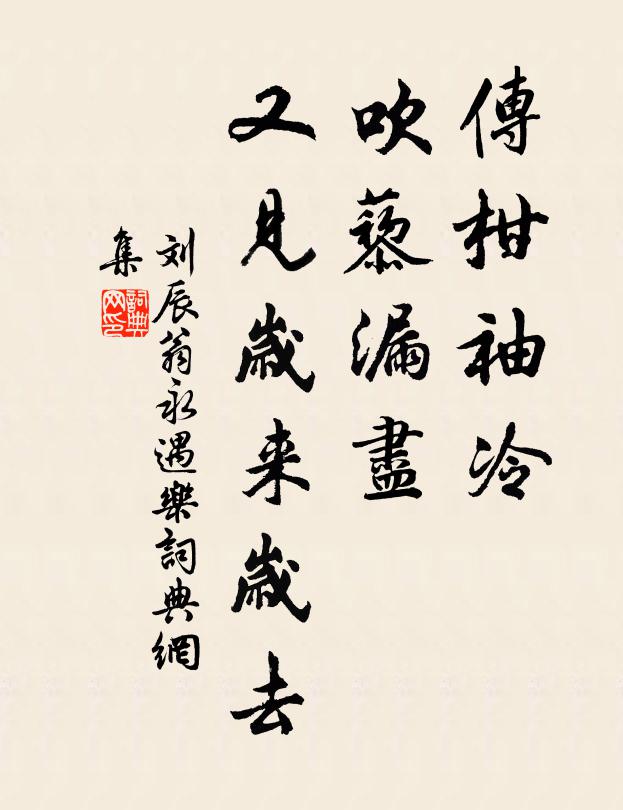 傳柑袖冷
吹藜漏盡
又見歲来歲去
刘辰翁永遇樂詞典網
集
詞典网印